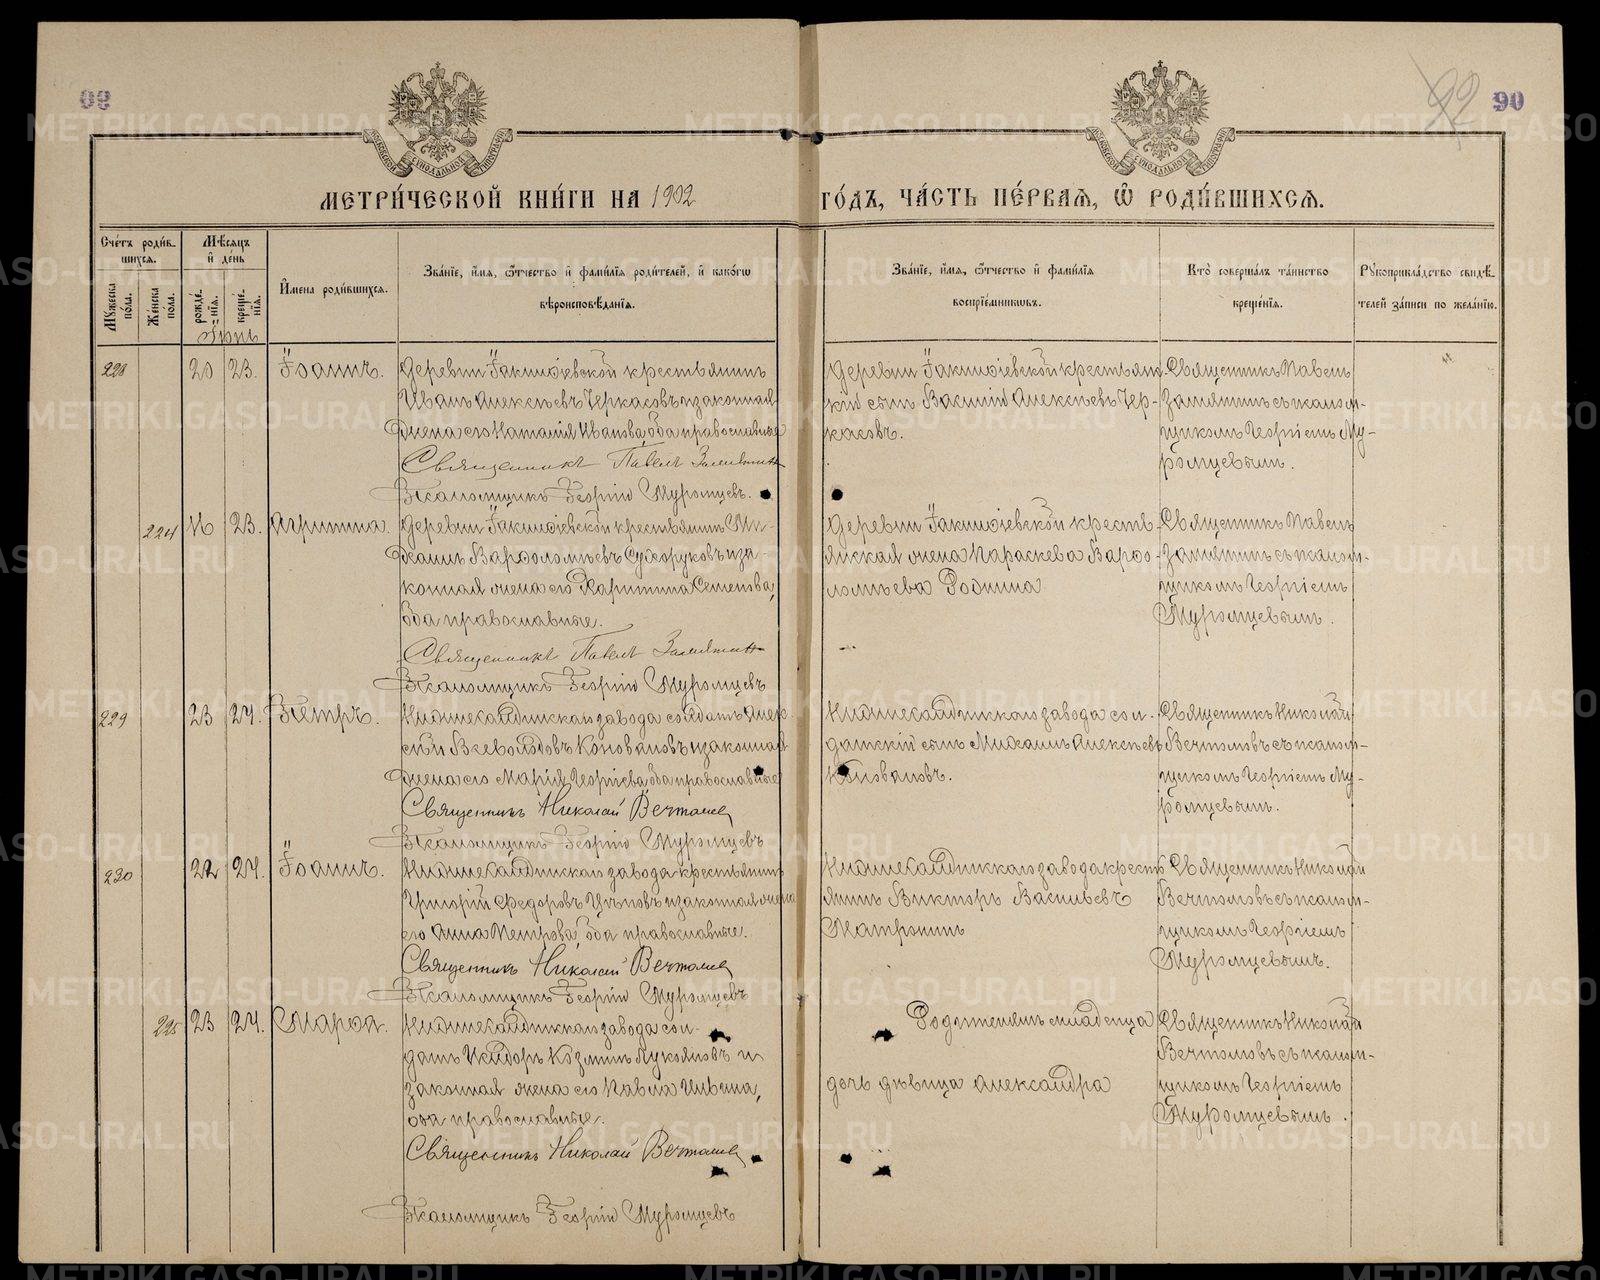 90
92
90
МЕТРИ́ЧЕСКОЙ КНИ́ГИ НА 1902
ГО́ДЪ, ЧА́СТЬ ПЕ́РВАѦ, Ѿ РОДИ́ВШИХСѦ.
Счéтъ роди́в-
шихся.
Мѣсяцъ
и́ день
Мꙋжеска
по́ла.
Же́нска
по́ла.
рожде́-
нїѧ.
креще́-
нїѧ.
И́мена роди́вшихсѧ.
Зва́нїе, и́мѧ, ѻ́тчество и́ фами́лїѧ роди́телей, и́ како́гѡ
вѣроисповѣ́данїѧ.
Зва́нїе, и́мѧ, ѻ́тчество и́ фами́лїѧ
воспрїе́мникѡвъ.
Кто̀ соверша́лъ та́инство
креще́нїѧ.
Рꙋкоприкла́дство свидѣ́-
телей за́писи по жела́нїю.
Іюнь
228
20 23. Іоаннъ.
Деревни Іакинѳіевской крестьянинъ
Иванъ Алексѣевъ Черкасовъ и законная
жена его Наталія Иванова, оба православные
Священникъ Павелъ Замятин
Псаломщикъ Георгій Муромцевъ.
Деревни Іакинѳіевской крестьян-
скій сынъ Василій Алексѣевъ Чер-
касовъ.
Священникъ Павелъ
Замятинъ съ псалом-
щикомъ Георгіемъ Му-
ромцевымъ.
224
23. Агриппина.
Деревни Іакинѳіевской крестьянинъ Ми-
хаилъ Варѳоломѣевъ Сухоруковъ и за-
конная жена его Харитина Семенова,
оба православные.
Священникъ Павелъ Замятин
Псаломщикъ Георгій Муромцевъ
Деревни Іакинѳіевской кресть-
янская жена Параскева Варѳо-
ломѣева
Священникъ Павелъ
Замятинъ съ псалом-
щикомъ Георгіемъ
Муромцевымъ.
229
23 24. Петръ.
Нижнесалдинскаго завода солдатъ Алек-
сѣй Всеволодовъ Коноваловъ и законная
жена его Марія Георгіева, оба православные
Священникъ Николай
Псаломщикъ Георгій Муромцевъ
Нижнесалдинскаго завода сол-
датскій сынъ Михаилъ Алексѣевъ
Коноваловъ.
Священникъ Николай
съ псалом-
щикомъ Георгіемъ Му-
ромцевымъ.
230
22 24. Іоаннъ.
Нижнесалдинскаго завода крестьянинъ
Григорій Ѳедоровъ и законная жена
его Анна Петрова, оба православные.
Священникъ Николай
Псаломщикъ Георгій Муромцевъ
Нижнесалдинскаго завода кресть-
янинъ Викторъ Васильевъ
Матронинъ
Священникъ Николай
съ псалом-
щикомъ Георгіемъ
Муромцевымъ.
225
23 24. Марѳа.
Нижнесалдинскаго завода сол-
датъ Исидоръ Козминъ Лукояновъ и
законная жена его Павла Ильина,
оба православные.
Священникъ Николай
Псаломщикъ Георгій Муромцевъ
младенца
дочь дѣвица Александра
Священникъ Николай
съ псалом-
щикомъ Георгіемъ
Муромцевымъ.
METRIKI.GASO-URAL.RU